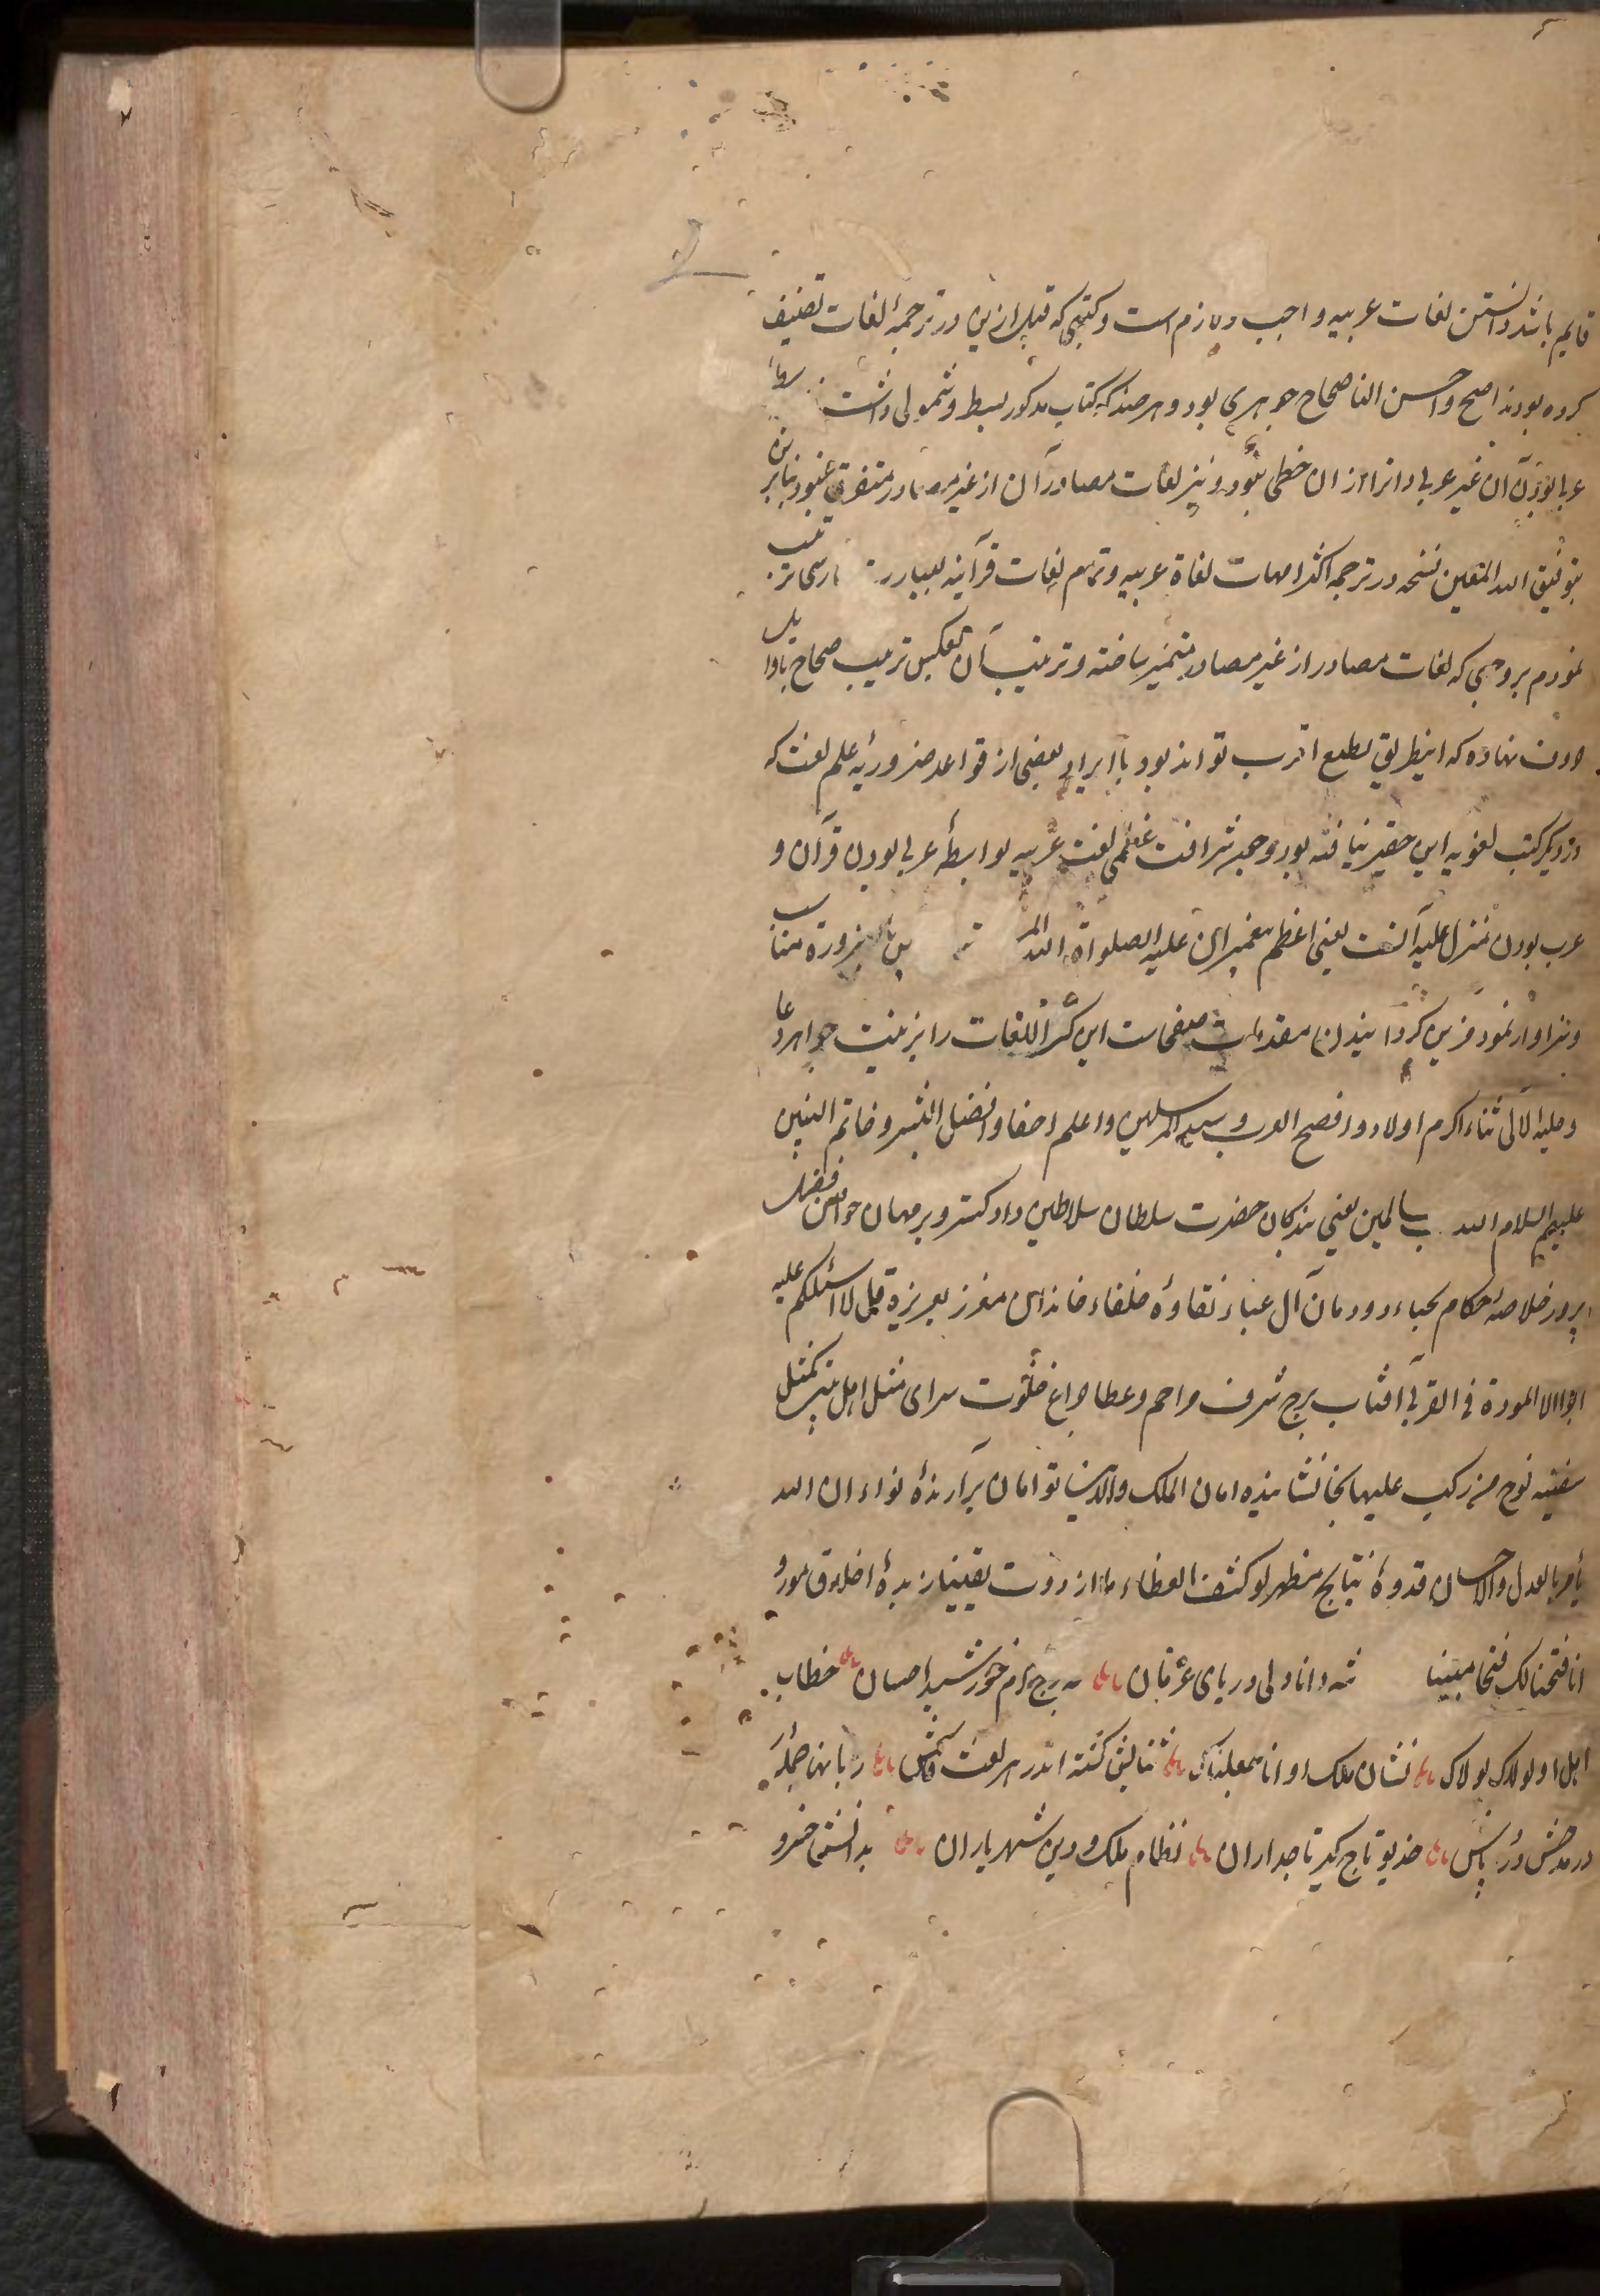 قایم باشد دانستن لغات عربیه واجب و لازم است و کتبی که قبل ازین در ترجمهٔ لغات تصنیف
کرده بودند اصح و احسن آنها صحاح جوهری بود و هر چند که کتاب مذکور بسط و شمولی داشت
عربی بودن آن غیر عربی دانرا از ان حظی نبود و نیز لغات مصادر آن از غیر مصادر متفرق نبود بنابرین
بتوفیق الله المتعین نسخه در ترجمه اکثر امهات لغاة عربیه و تمام لغات قرآنیه بعبارت پارسی ترتیب
نمودم بروجهی که لغات مصادر از غیر مصادر متمیز ساخته و ترتیب آن بعکس ترتیب صحاح باوایل
حروف نهاده که اینطریق بطبع اقرب تواند بود با ایراد بعضی از قواعد ضروریه علم لغت که
در دیگر کتب لغویه این حقیر نیافته بود و چون شرافت عظمی لغت عربیه بواسطهٔ عربی بودن قرآن و
عرب بودن منزل علیه آنست یعنی اعظم پیغمبران علیه الصلواة الله بالضرورة مناسب
و سزاوار نمود مزین گردانیدن مقدمات صفحات این کنز اللغات را بزینت جواهر دعا
و حلیه لآلی ثناء اکرم اولاد و افصح العرب و سید المرسلین و اعلم احفاد افضل البشر و خاتم النبیین
علیهم السلام الله یعنی بندگان حضرت سلطان سلاطین دادگستر و برمهان خواقین فضل
پرور خلاصهٔ حکام نجباء دودمان آل عباء نقاوهٔ خلفاء خاندان معزز بعزیزة قل لا اسئلکم علیه
اجرا الا المودة فی القربی آفتاب برج شرف مراحم و عطا چراغ خلوت سرای مثل اهل بیتی کمثل
سفینه نوح من رکب علیها نجا نشاننده امان الملک والدین توامان برآرندهٔ نواء ان الله
یأمر بالعدل والاحسان قدوهٔ نتایج مظهر لو کشف الغطاء ما ازددت یقینا زبدهٔ اخلاق مورد
انا فتحنا لک فتحا مبینا شه دانا دلی دریای عرفان مه برج کرم خورشید احسان خطاب
اهل او لولاک لولاک نشان ملک او انا جعلناک ثنایش گشته اندر هر لغت فاش زبانها جمله
در مدحش در پاش خدیو تاج گیر تاجداران نظام ملک و دین شهریاران بدانش خسرو